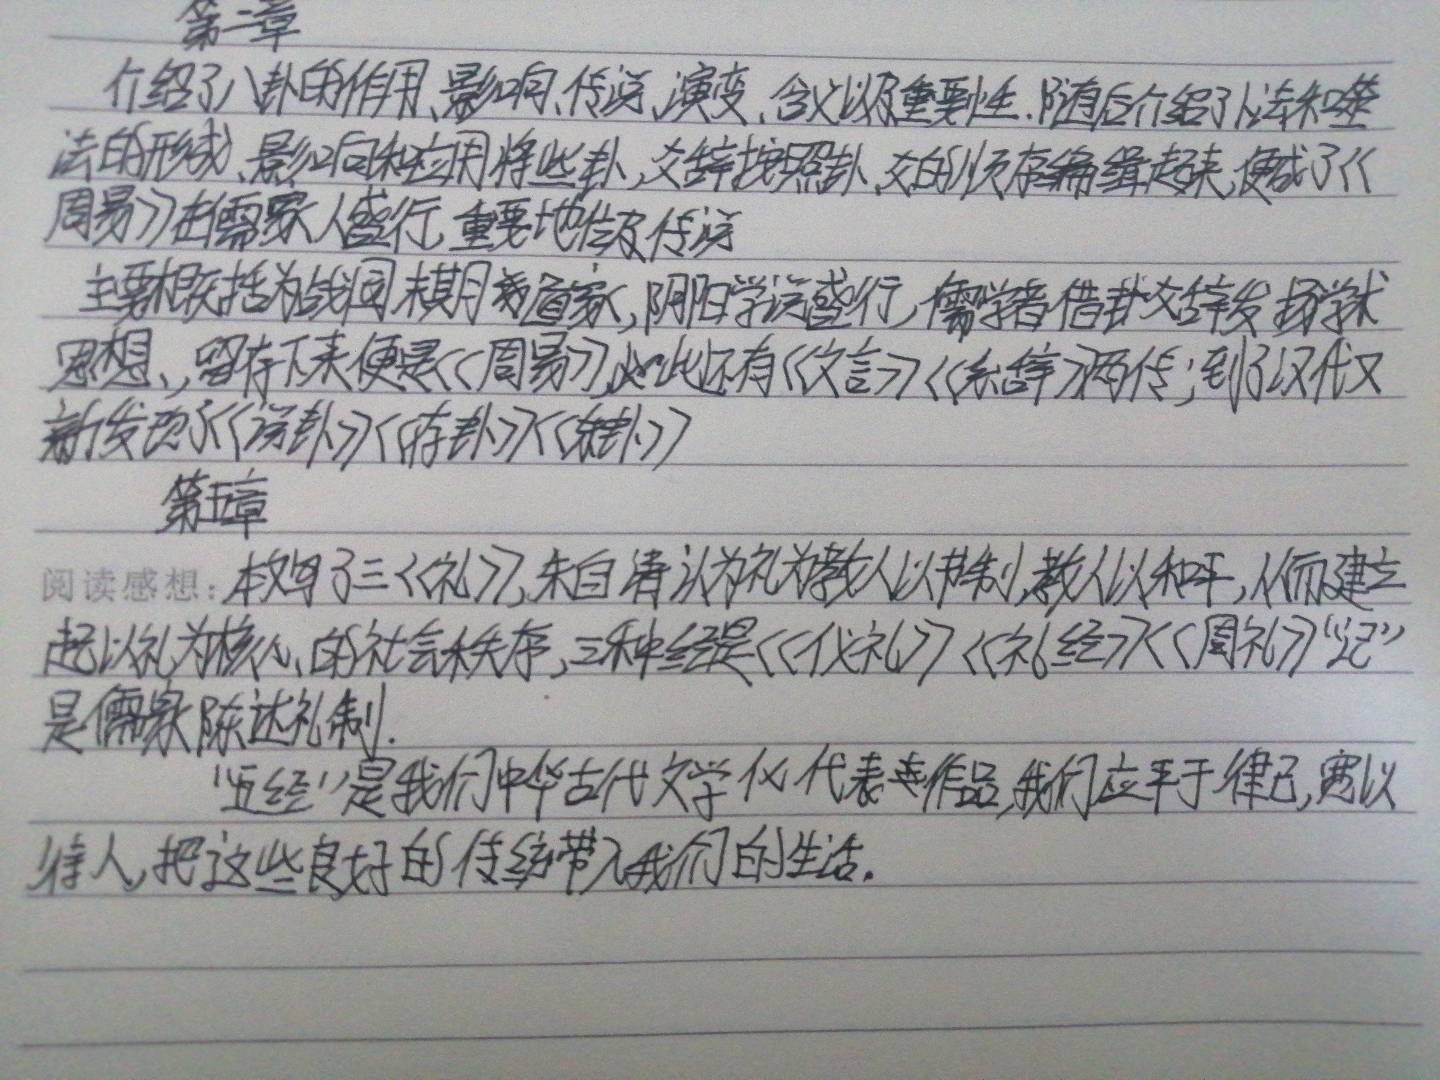 第二章
介绍了八卦的作用、影响、传说、演变、含义以及重要性.随后介绍了卜法和筮
法的形成、影响和应用将些卦,爻辞按照卦、爻的顺序编缉起来,便成了《
周易》在儒家人盛行,重要地位及传说
主要概括为战国末期道家,阴阳学说盛行,儒学者借卦爻辞发扬学术
思想、,留存下来便是《周易》,此还有《文言》《系辞》两传;到了汉代又
新发现了《说卦》《序卦》《杂卦》
第五章
阅读感想:本文写了三《礼》,朱自清认为礼为教人以节制,教人以和平,从而建立
起以礼为核心、的社会秩序,三种经是《仪礼》《礼经》《周礼》“记”
是儒家陈述礼制.
“五经”是我们中华古代文学化代表性作品,我们应乎于律己,宽以
待人,把这些良好的传统带入我们的生活.